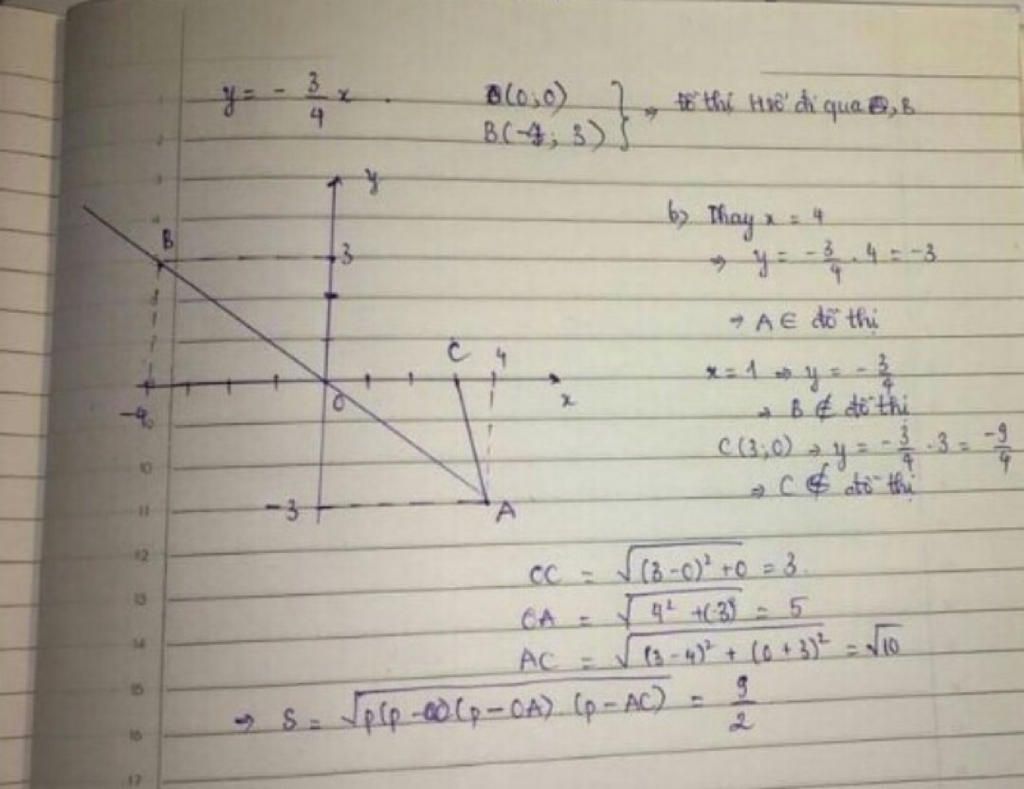 y = - 3/4 x . O(0;0) } ⇒ đồ thị Hsố đi qua O, B
B(-4; 3)
y
B
3
-4
O
C
4
x
-3
A
b) Thay x = 4
⇒ y = - 3/4 . 4 = -3
→ A ∈ đồ thị
x = 1 ⇒ y = - 3/4
⇒ B ∉ đồ thị
C(3;0) → y = - 3/4 . 3 = -9/4
⇒ C ∉ đồ thị
OC = √((3-0)² + 0) = 3
OA = √(4² + (-3)²) = 5
AC = √((3-4)² + (0+3)²) = √10
⇒ S = √(p(p-OC)(p-OA)(p-AC)) = 9/2